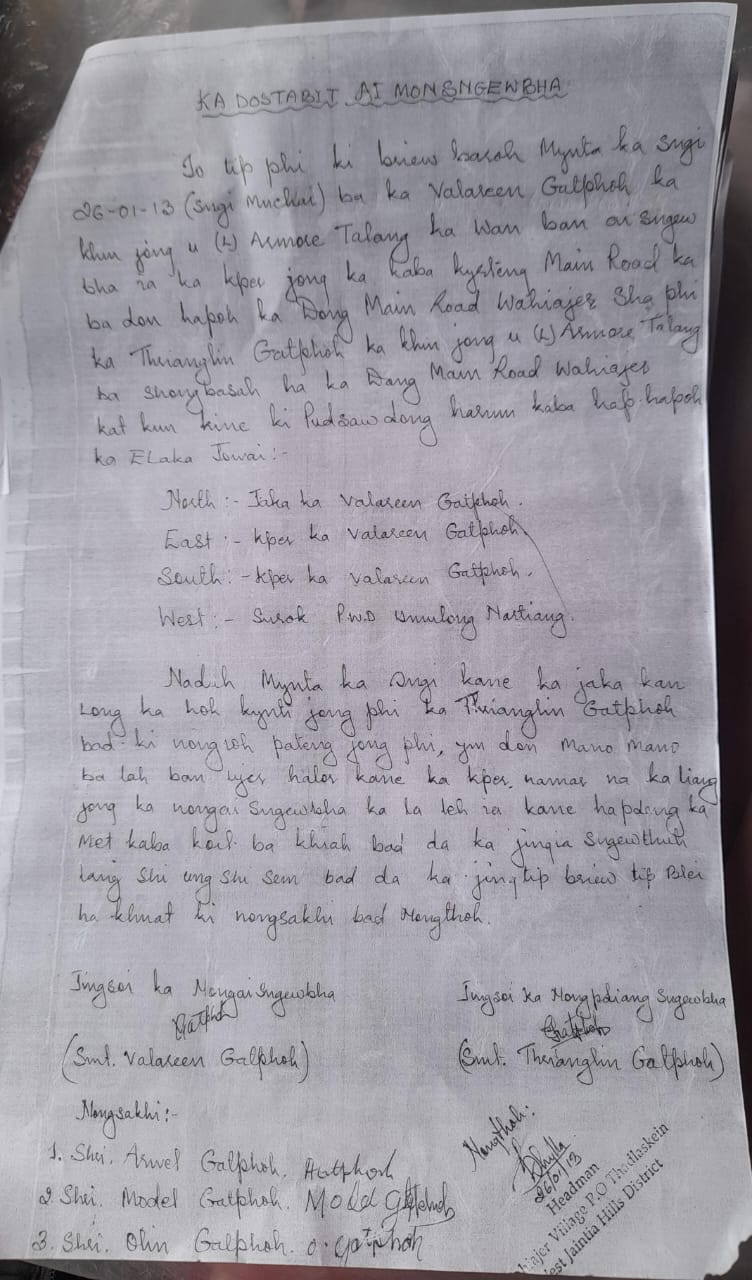 KA DOSTABIT AI MONSNGEWBHA
To tip phi ki briew baroh Mynta ka Sngi
26-01-13 (Sngi Muchai) ba ka Valareen Gatphoh ka
khun jong u (L) Armore Talang ka Wan ban ai sngew
bha ia ka kper jong ka kaba kysteng Main Road ka
ba don hapoh ka Dong Main Road Wahiajer Sha phi
ka Therianglin Gatphoh ka khun jong u (L) Armore Talang
ba shong basah ha ka Dong Main Road Wahiajer
kat kum kine ki Pudsaw dong harum kaba hap hapoh
ka Elaka Jowai :-
North :- Jaka ka Valareen Gatphoh.
East :- kper ka Valareen Gatphoh
South :- kper ka Valareen Gatphoh.
West :- Surok P.W.D Ummulong Nartiang.
Naduh Mynta ka Sngi kane ka jaka kan
Long ka hok kynti jong phi ka Therianglin Gatphoh
bad ki nongïoh pateng jong phi, ym don Mano Mano
ba lah ban ujer halor kane ka kper, namar na ka liang
jong ka nongai Sngewbha ka la leh ia kane hapdeng ka
Met kaba koit ba khiah bad da ka jingia Sngewthuh
lang shi ung shi sem bad da ka jingtip briew tip Blei
ha khmat ki nongsakhi bad Nongthoh.
Jingsoi ka Nongai Sngewbha
Jingsoi ka Nongpdiang Sngewbha
Gatphoh
Gatphoh
(Smt. Valareen Gatphoh)
(Smt. Therianglin Gatphoh)
Nongsakhi :-
Nongthoh :
1. Shri. Arwel Gatphoh. Aatphoh
2. Shri. Model Gatphoh. Model Gatphoh
3. Shri. Olin Gatphoh. O. Gatphoh
26/01/13
Headman
Village P.O Thadlaskein
Jaintia Hills District